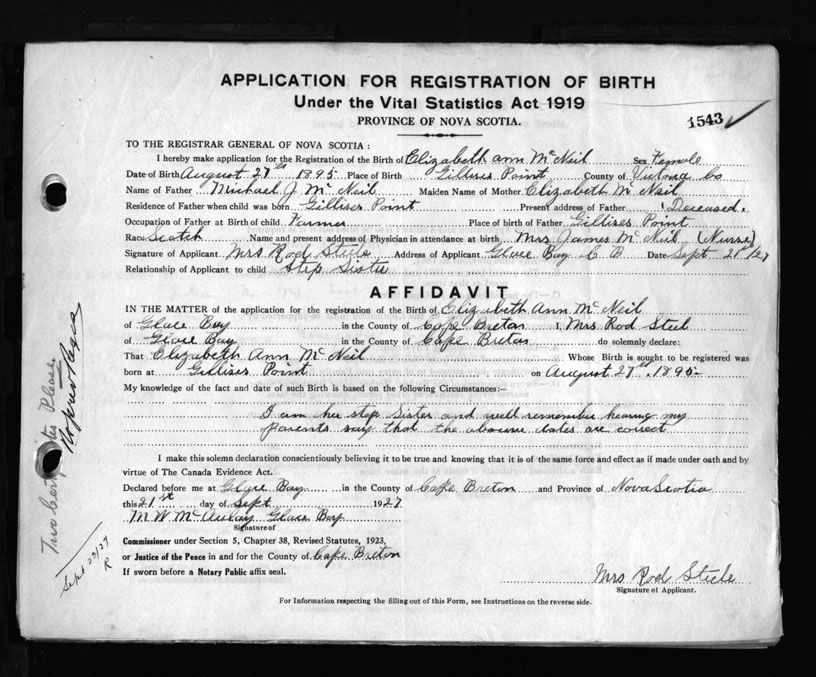 APPLICATION FOR REGISTRATION OF BIRTH
Under the Vital Statistics Act 1919
PROVINCE OF NOVA SCOTIA.
1543
TO THE REGISTRAR GENERAL OF NOVA SCOTIA :
I hereby make application for the Registration of the Birth of Elizabeth Ann Mc Neil Sex Female
Date of Birth August 27th 1895 Place of Birth Gillises Point County of Victoria Co
Name of Father Michael J. Mc Neil Maiden Name of Mother Elizabeth Mc Neil
Residence of Father when child was born Gillises Point Present address of Father (Deceased.
Occupation of Father at Birth of child Farmer Place of birth of Father Gillises Point
Race Scotch Name and present address of Physician in attendance at birth Mrs James Mc Neil (Nurse)
Signature of Applicant Mrs Rod Steele Address of Applicant Glace Bay C B Date Sept 21st/27
Relationship of Applicant to child Step Sister
AFFIDAVIT
IN THE MATTER of the application for the registration of the Birth of Elizabeth Ann Mc Neil
of Glace Bay in the County of Cape Breton I, Mrs Rod Steel
of Glace Bay in the County of Cape Breton do solemnly declare:
That Elizabeth Ann Mc Neil Whose Birth is sought to be registered was
born at Gillises Point on August 27th, 1895
My knowledge of the fact and date of such Birth is based on the following Circumstances:—
I am her step Sister and well remember hearing my
parents say that the above dates are correct
I make this solemn declaration conscientiously believing it to be true and knowing that it is of the same force and effect as if made under oath and by
virtue of The Canada Evidence Act.
Declared before me at Glace Bay in the County of Cape Breton and Province of Nova Scotia
this 21st day of Sept 1927
M W McAulay Glace Bay
Signature of
Commissioner under Section 5, Chapter 38, Revised Statutes, 1923,
or Justice of the Peace in and for the County of Cape Breton
If sworn before a Notary Public affix seal.
Mrs Rod Steele
Signature of Applicant.
For Information respecting the filling out of this Form, see Instructions on the reverse side.
Two Please.
Sept 23/27
R